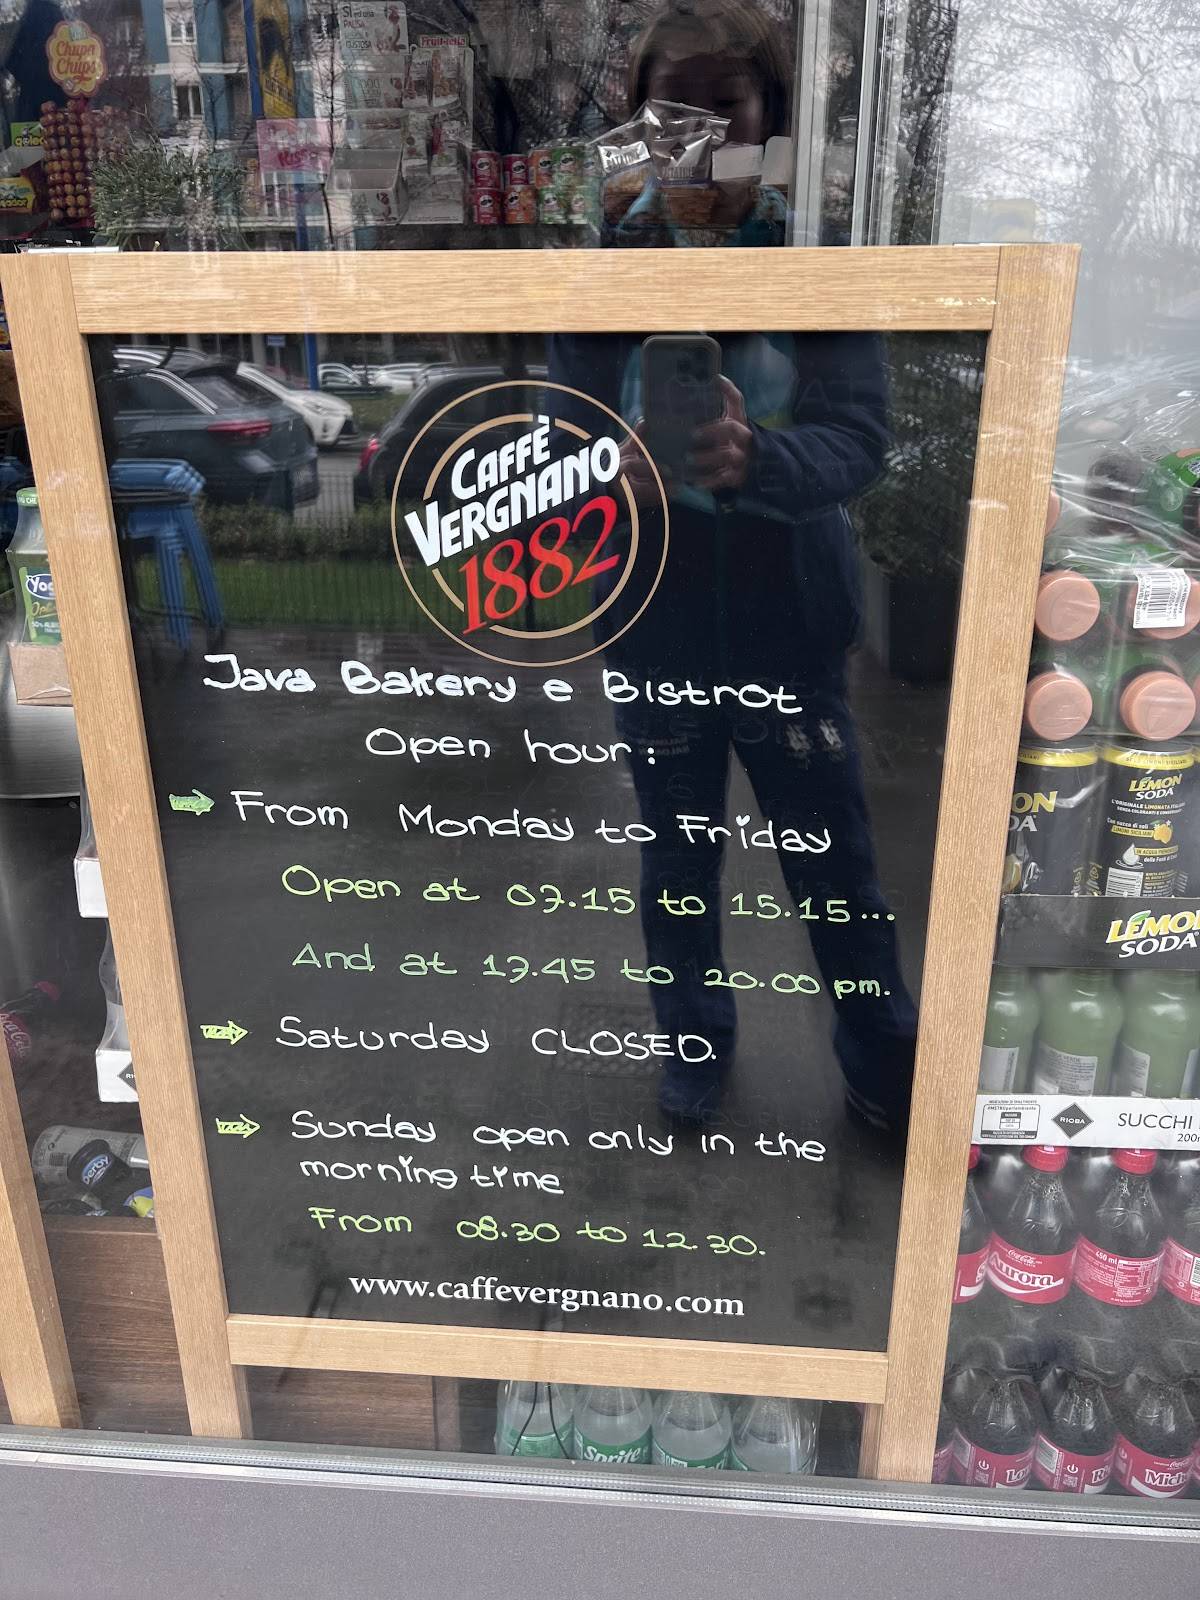 Chupa
Chups
CAFFÈ
VERGNANO
1882
Java Bakery e Bistrot
Open hour:
From Monday to Friday
Open at 07.15 to 15.15...
And at 17.45 to 20.00 pm.
Saturday CLOSED.
Sunday open only in the
morning time
From 08.30 to 12.30.
www.caffevergnano.com
LEMON
SODA
LEMO
SODA
RIOBA
SUCCHI
200
Coca-Cola
Aurora
450 ml
Sprite
Mich
derby